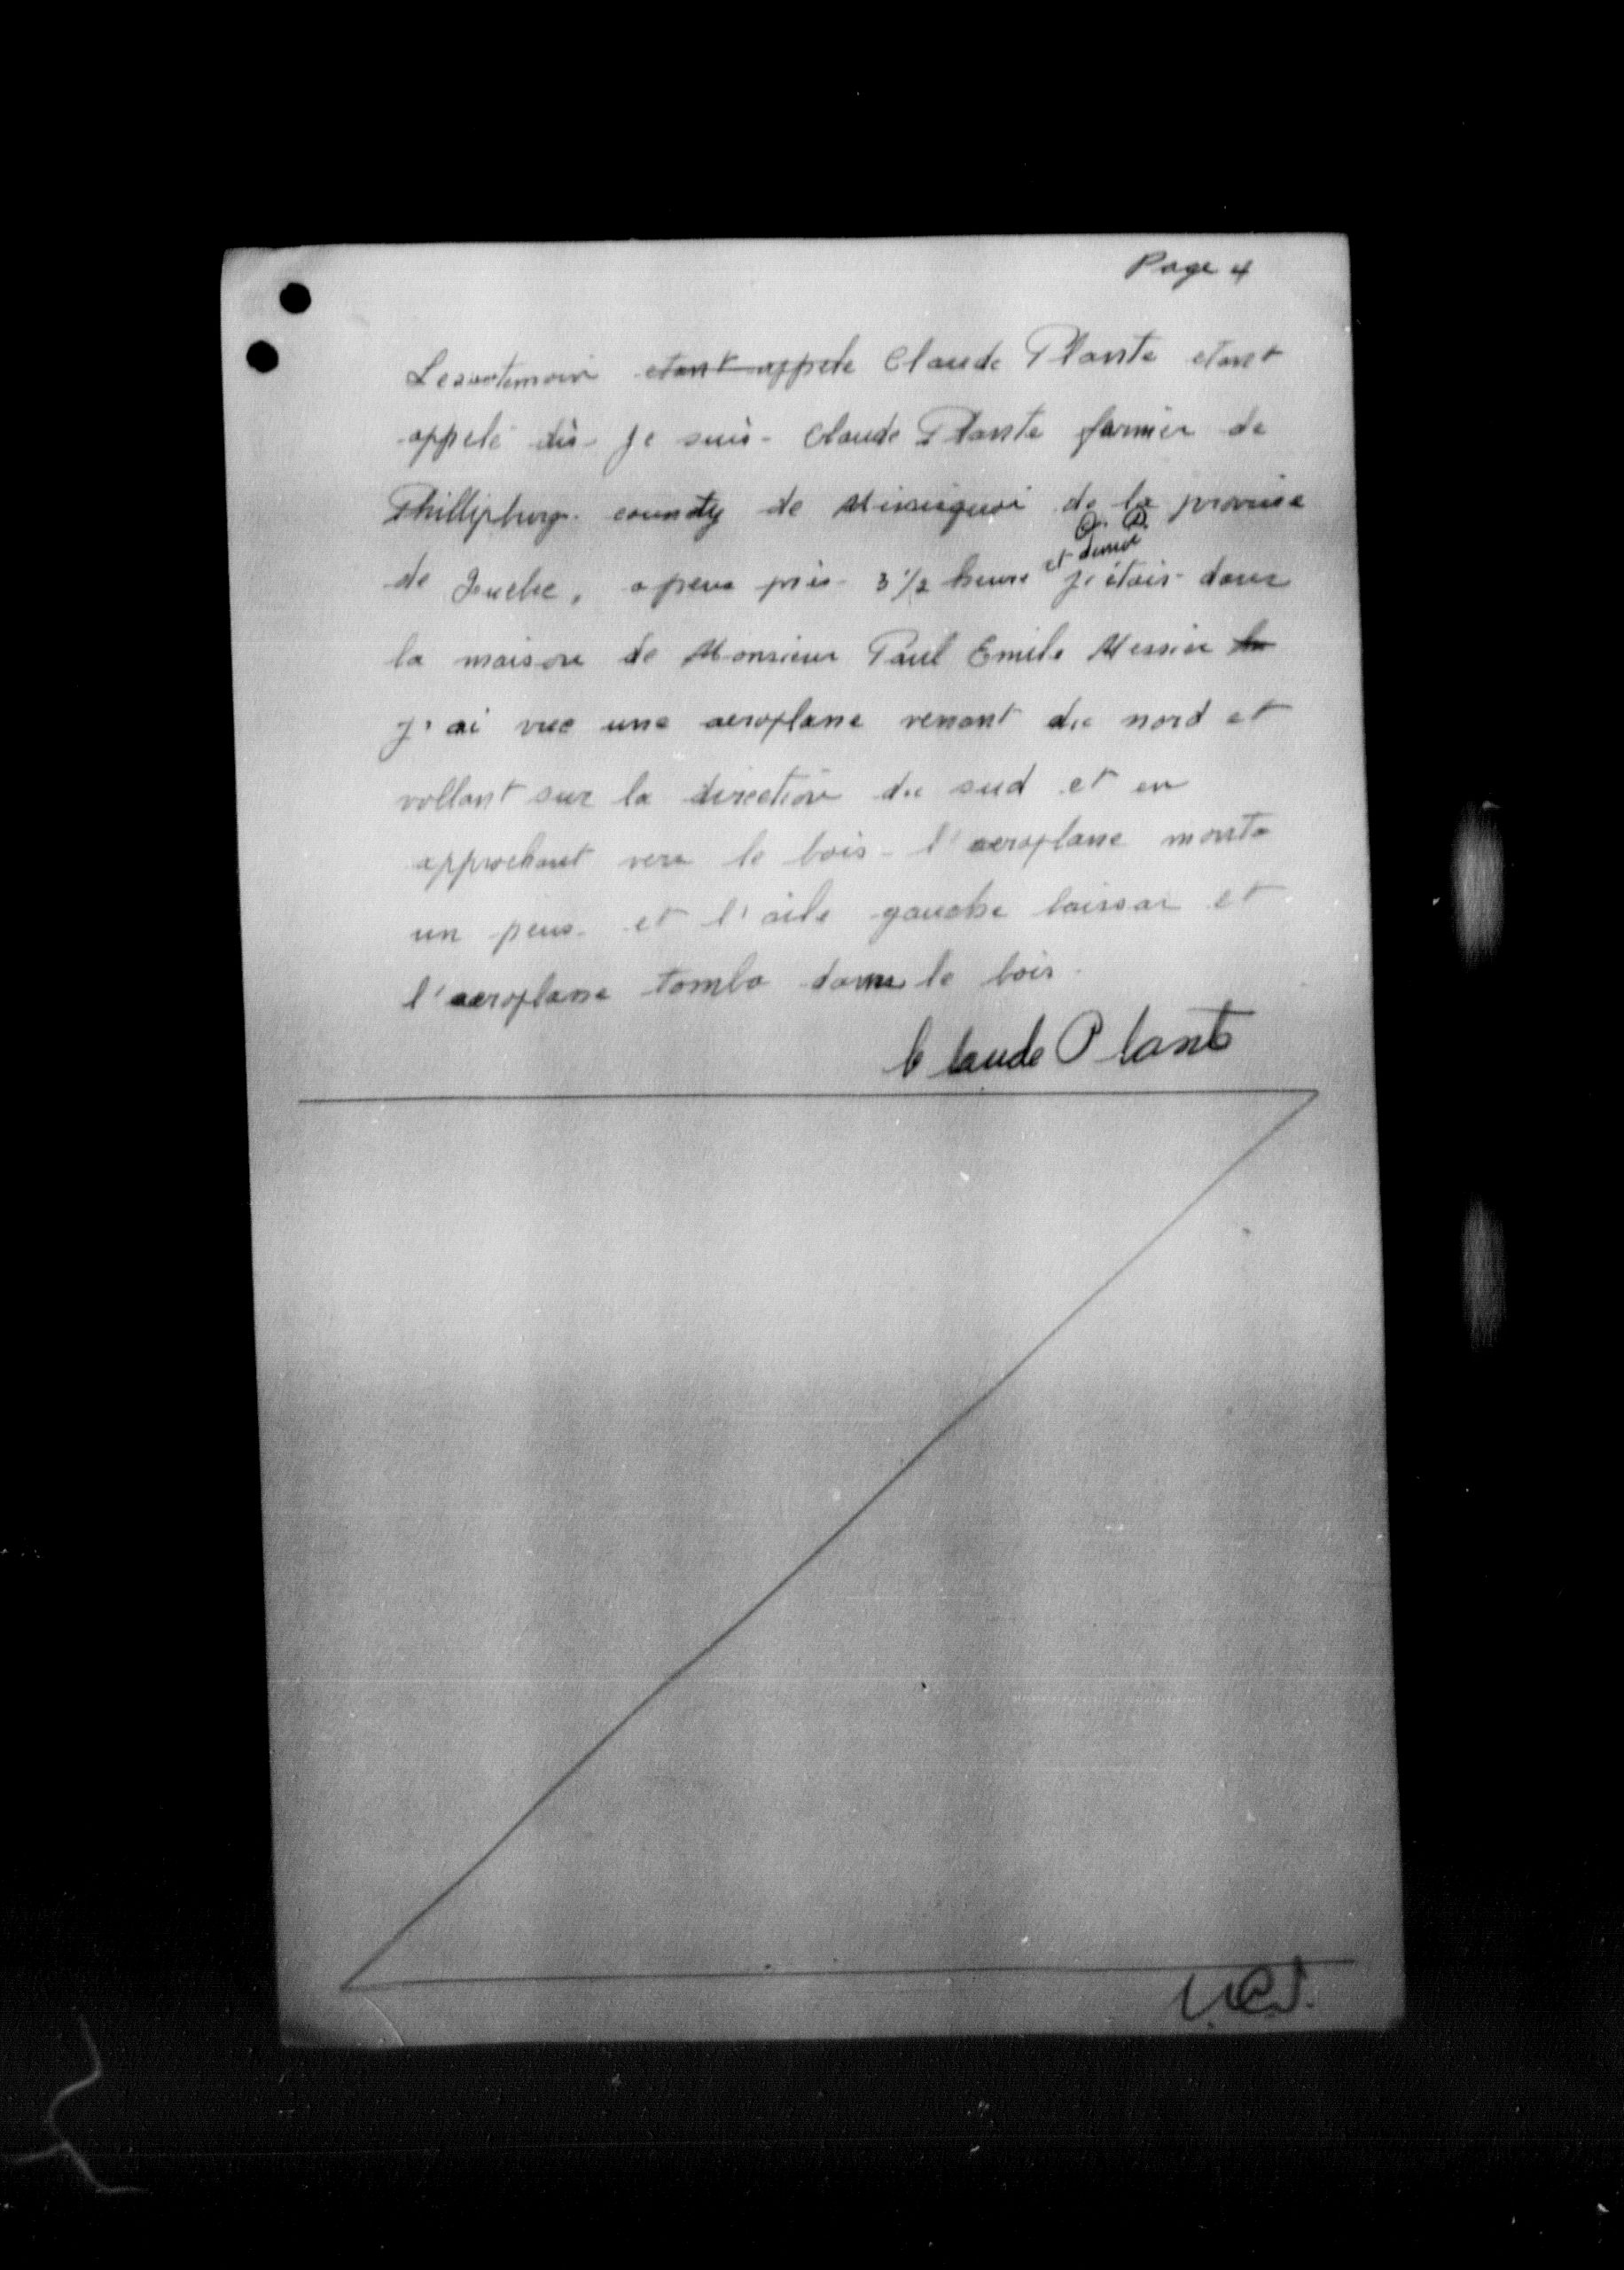 Page 4
etant appele Claude Plante etant
appele dis je suis Claude Plante farmier de
Phillipburg county de Missisquoi de la province
C. P.
et demie
de Quebec, a peux près 3 1/2 heure j'étais dans
la maison de Monsieur Paul Emile Messier
j'ai vue une aeroplane venant du nord et
vollant sur la direction du sud et en
approchant vers le bois l'aeroplane monta
un peux et l'aile gauche baissai et
l'aeroplane tomba dans le bois
Claude Plante